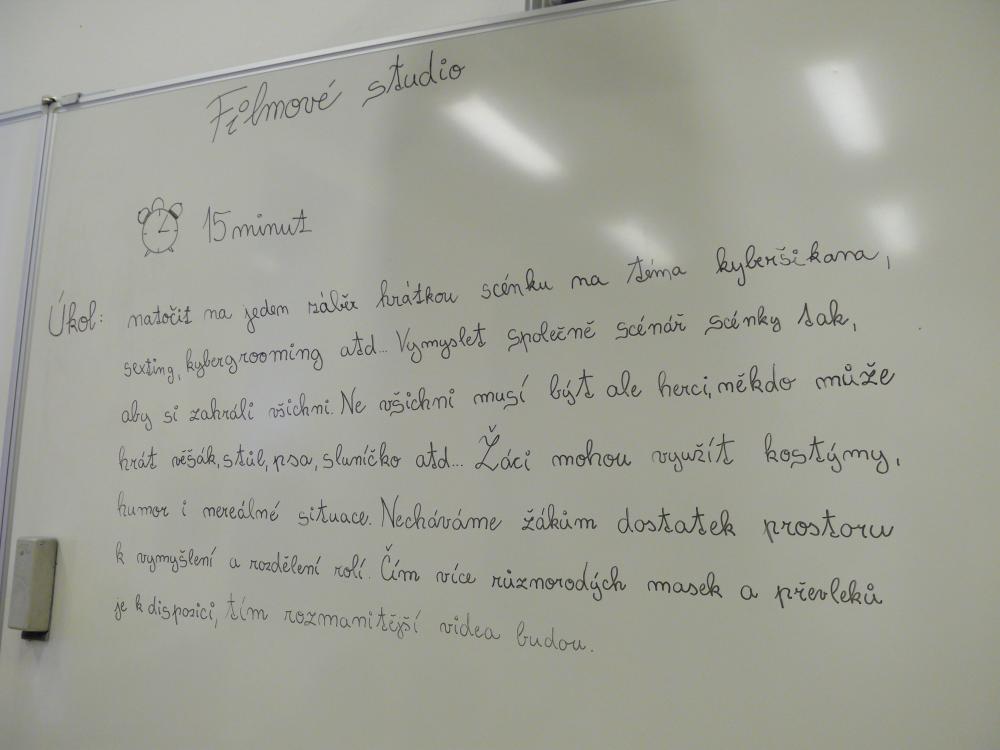 Filmové studio
15 minut
Úkol: natočit na jeden záběr hrátkou scénku na téma kyberšikana,
sexting, kybergrooming atd... Vymyslet společně scénář scénky tak,
aby si zahráli všichni. Ne všichni musí být ale herci, někdo může
hrát věšák, stůl, psa, sluníčko atd... Žáci mohou využít kostýmy,
humor i nereálné situace. Necháváme žákům dostatek prostoru
k vymyšlení a rozdělení rolí. Čím více různorodých masek a převleků
je k dispozici, tím rozmanitější videa budou.